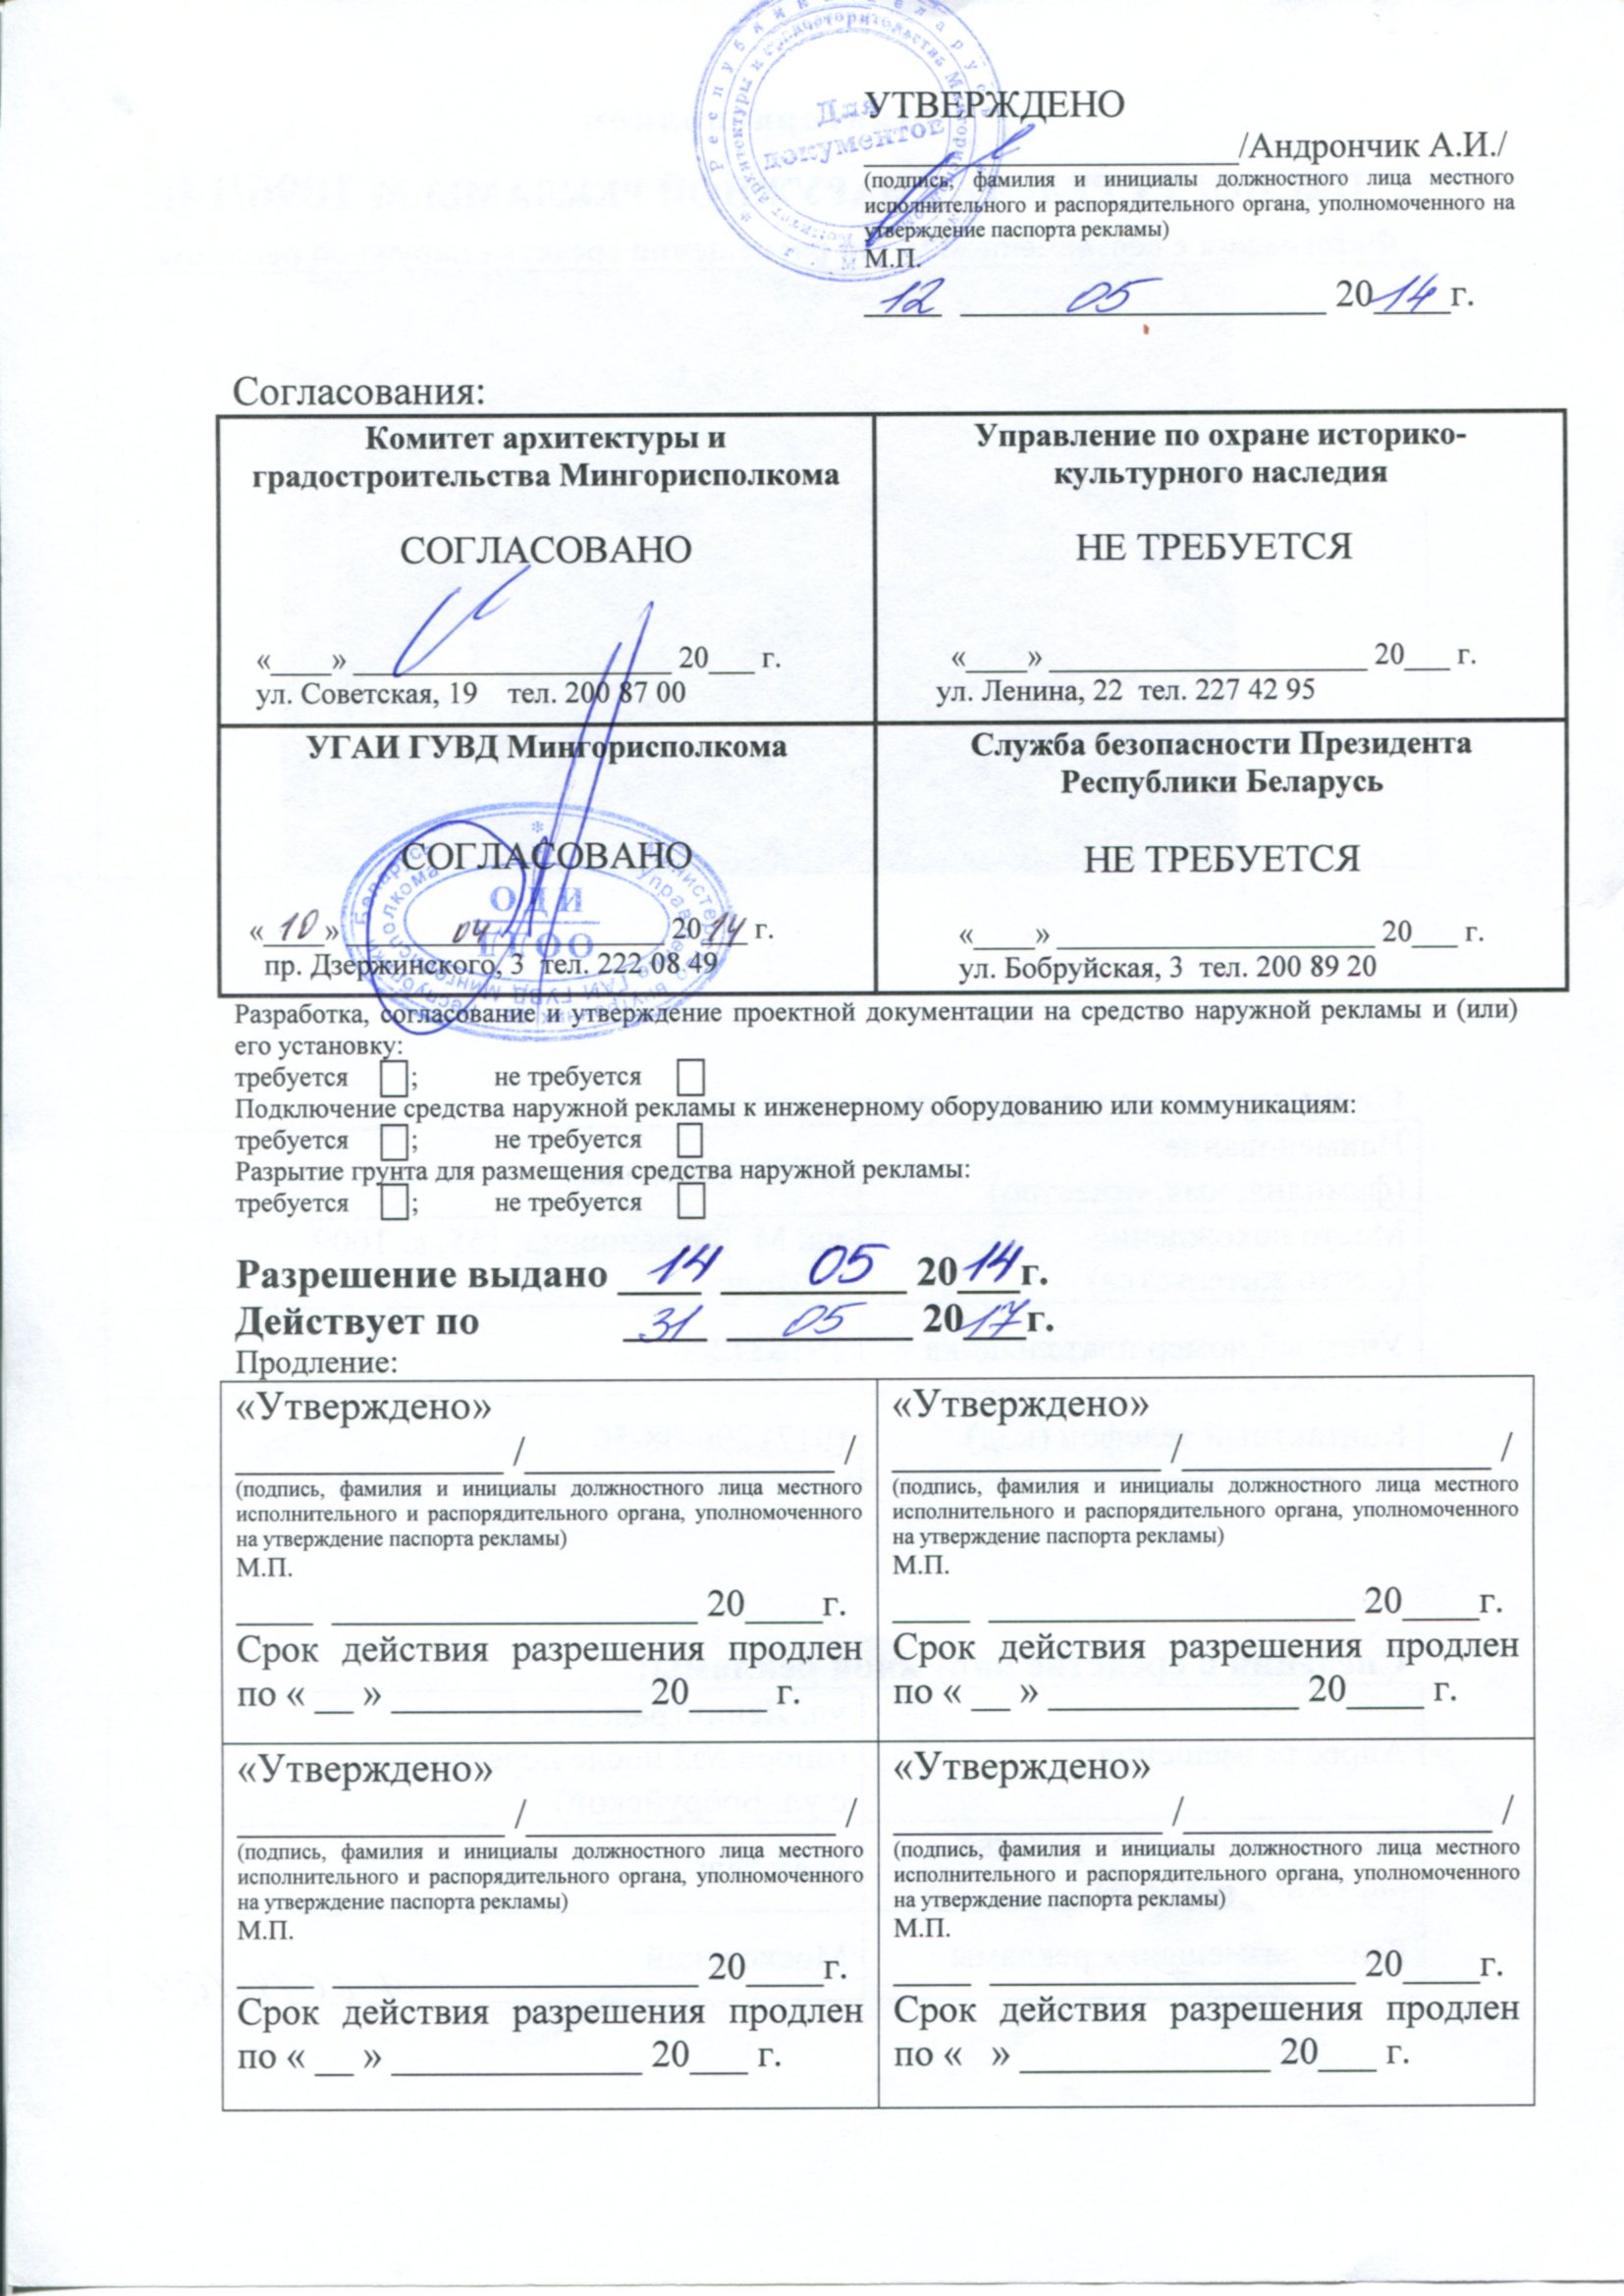 Для
документов
УТВЕРЖДЕНО
____________________/Андрончик А.И./
(подпись, фамилия и инициалы должностного лица местного
исполнительного и распорядительного органа, уполномоченного на
утверждение паспорта рекламы)
М.П.
12 05 2014г.
Согласования:
Комитет архитектуры и
градостроительства Мингорисполкома
СОГЛАСОВАНО
«____» ____________________ 20___ г.
ул. Советская, 19 тел. 200 87 00
Управление по охране историко-
культурного наследия
НЕ ТРЕБУЕТСЯ
«____» ____________________ 20___ г.
ул. Ленина, 22 тел. 227 42 95
УГАИ ГУВД Мингорисполкома
СОГЛАСОВАНО
ОДИ
«10» 04 2014 г.
пр. Дзержинского, 3 тел. 222 08 49
Служба безопасности Президента
Республики Беларусь
НЕ ТРЕБУЕТСЯ
«____» ____________________ 20___ г.
ул. Бобруйская, 3 тел. 200 89 20
Разработка, согласование и утверждение проектной документации на средство наружной рекламы и (или)
его установку:
требуется ; не требуется
Подключение средства наружной рекламы к инженерному оборудованию или коммуникациям:
требуется ; не требуется
Разрытие грунта для размещения средства наружной рекламы:
требуется ; не требуется
Разрешение выдано 14 05 2014г.
Действует по 31 05 2017г.
Продление:
«Утверждено»
______________ /________________ /
(подпись, фамилия и инициалы должностного лица местного
исполнительного и распорядительного органа, уполномоченного
на утверждение паспорта рекламы)
М.П.
____ ___________________ 20____г.
Срок действия разрешения продлен
по « __ » _____________ 20____ г.
«Утверждено»
______________ /________________ /
(подпись, фамилия и инициалы должностного лица местного
исполнительного и распорядительного органа, уполномоченного
на утверждение паспорта рекламы)
М.П.
____ ___________________ 20____г.
Срок действия разрешения продлен
по « __ » _____________ 20____ г.
«Утверждено»
______________ /________________ /
(подпись, фамилия и инициалы должностного лица местного
исполнительного и распорядительного органа, уполномоченного
на утверждение паспорта рекламы)
М.П.
____ ___________________ 20____г.
Срок действия разрешения продлен
по « __ » _____________ 20___ г.
«Утверждено»
______________ /________________ /
(подпись, фамилия и инициалы должностного лица местного
исполнительного и распорядительного органа, уполномоченного
на утверждение паспорта рекламы)
М.П.
____ ___________________ 20____г.
Срок действия разрешения продлен
по « » _____________ 20___ г.